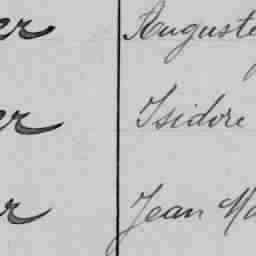 er Auguste
er Isidore
er Jean